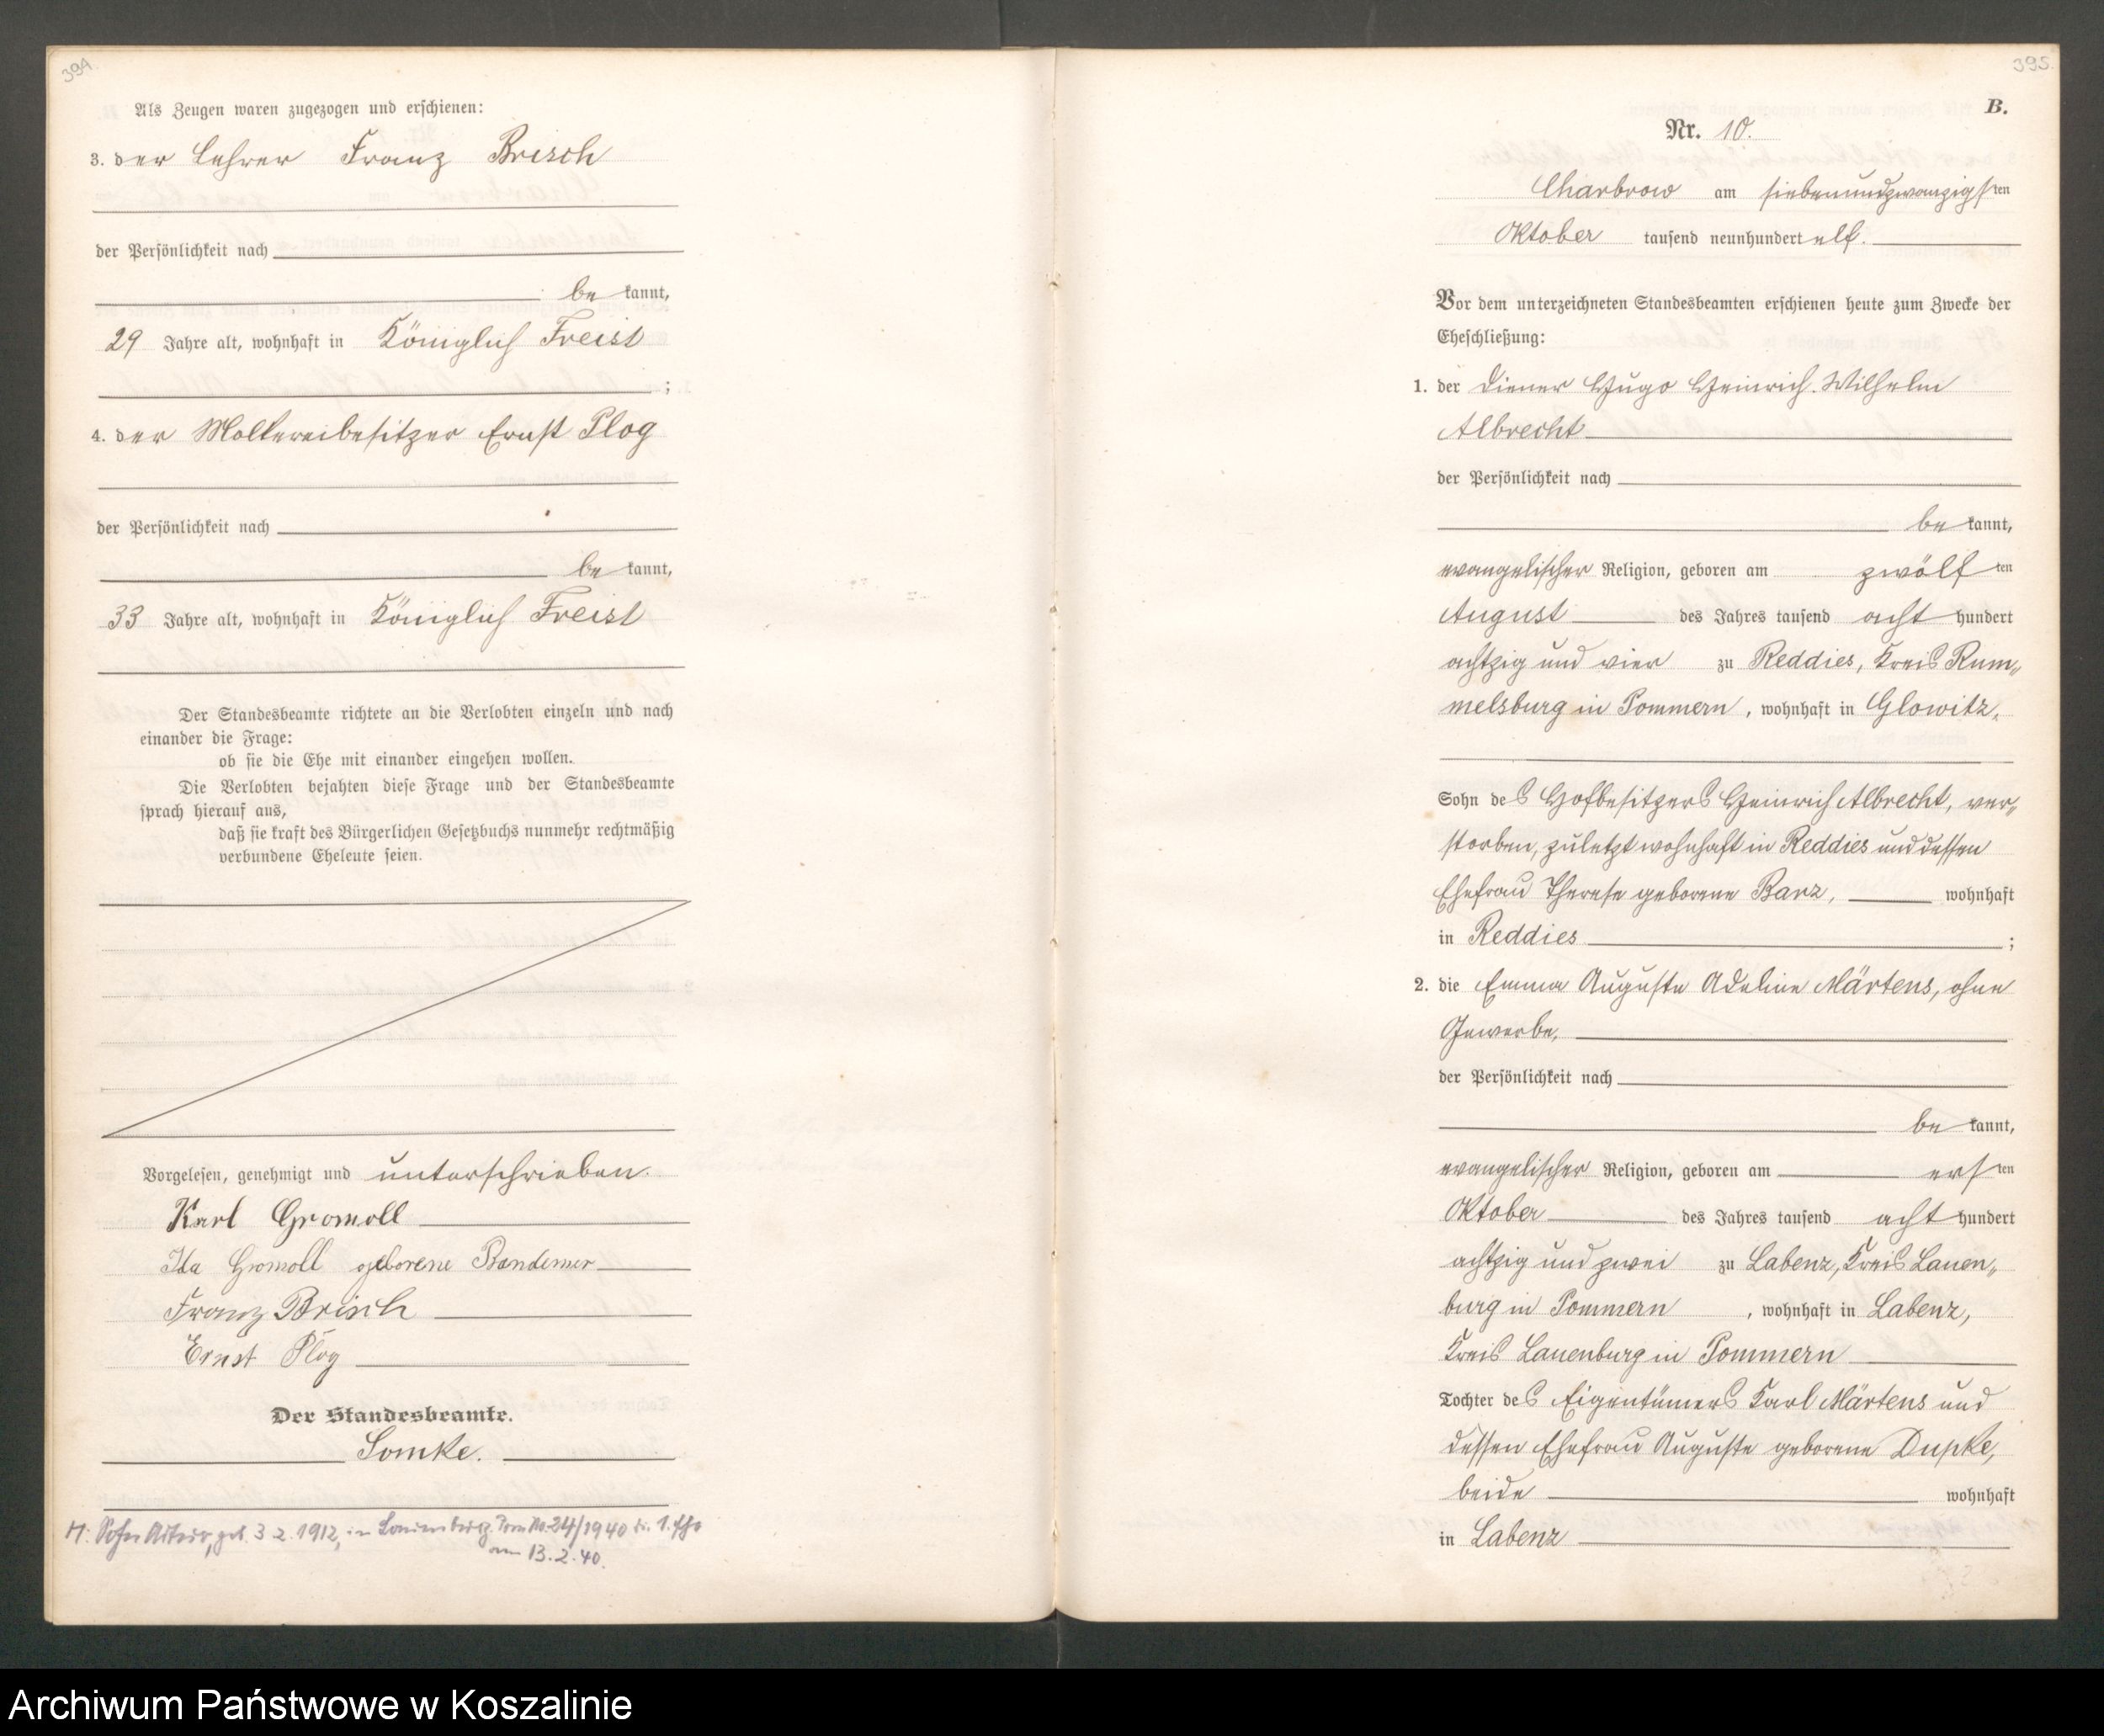 394.
Als Zeugen waren zugezogen und erschienen:
3. der Lehrer Franz Brisch
der Persönlichkeit nach
be kannt,
29 Jahre alt, wohnhaft in Königlich Freist
;
4. der Molkereibesitzer Ernst Plog
der Persönlichkeit nach
be kannt,
33 Jahre alt, wohnhaft in Königlich Freist
Der Standesbeamte richtete an die Verlobten einzeln und nach
einander die Frage:
ob sie die Ehe mit einander eingehen wollen.
Die Verlobten bejahten diese Frage und der Standesbeamte
sprach hierauf aus,
daß sie kraft des Bürgerlichen Gesetzbuchs nunmehr rechtmäßig
verbundene Eheleute seien.
Vorgelesen, genehmigt und unterschrieben.
Karl Gromoll
Ida Gromoll geborene Bandemer
Franz Brisch
Ernst Plog
Der Standesbeamte.
Lomke.
H: Sohn geb. 3.2.1912, in Lauenburg Pom No. 24/1940 1. Ehe
am 13.2.40.
395.
B.
Nr. 10.
Charbrow am siebenundzwanzigsten
Oktober tausend neunhundert elf.
Vor dem unterzeichneten Standesbeamten erschienen heute zum Zwecke der
Eheschließung:
1. der Diener Hugo Heinrich Wilhelm
Albrecht
der Persönlichkeit nach
be kannt,
evangelischer Religion, geboren am zwölf ten
August des Jahres tausend acht hundert
achtzig und vier zu Reddies, Kreis Rum„
melsburg in Pommern, wohnhaft in Glowitz,
Sohn des Hofbesitzers Heinrich Albrecht, ver„
storben, zuletzt wohnhaft in Reddies und dessen
Ehefrau Therese geborene Barz, wohnhaft
in Reddies ;
2. die Emma Auguste Adeline Märtens, ohne
Gewerbe,
der Persönlichkeit nach
be kannt,
evangelischer Religion, geboren am ersten
Oktober des Jahres tausend acht hundert
achtzig und zwei zu Labenz, Kreis Lauen„
burg in Pommern, wohnhaft in Labenz,
Kreis Lauenburg in Pommern
Tochter des Eigentümers Karl Märtens und
dessen Ehefrau Auguste geborene Dupke,
beide wohnhaft
in Labenz
Archiwum Państwowe w Koszalinie